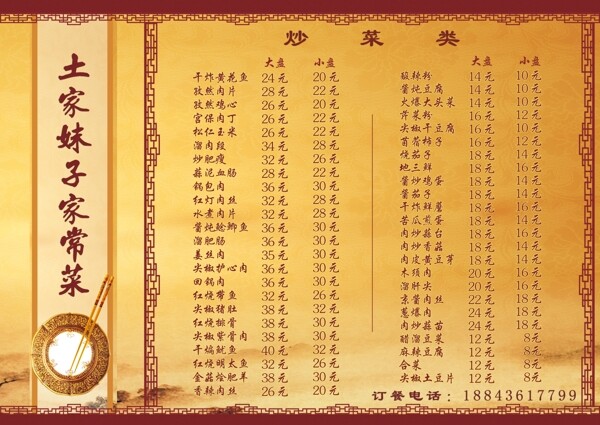 土家妹子家常菜
炒菜类
大盘 小盘
干炸黄花鱼 24元 20元
孜然肉片 28元 22元
孜然鸡心 26元 20元
宫保肉丁 26元 22元
松仁玉米 26元 22元
溜肉段 34元 28元
炒肥瘦 32元 26元
蒜泥血肠 28元 22元
锅包肉 36元 30元
红灯肉丝 32元 28元
水煮肉片 32元 28元
酱炖鲶鲫鱼 36元 30元
溜肥肠 36元 30元
姜丝肉 35元 30元
尖椒护心肉 36元 30元
回锅肉 36元 30元
红烧带鱼 32元 26元
尖椒猪肚 38元 32元
红烧排骨 38元 30元
尖椒紫骨肉 38元 30元
干煸鱿鱼 40元 32元
红烧明太鱼 32元 26元
金菇烩肥羊 38元 30元
香辣肉丝 26元 20元
大盘 小盘
酸辣粉 14元 10元
酱炖豆腐 14元 10元
火爆大头菜 14元 10元
芹菜粉 16元 12元
尖椒干豆腐 16元 10元
茴蒿柿子 16元 12元
烧茄子 18元 14元
地三鲜 18元 16元
酱炒鸡蛋 18元 14元
酱茄子 18元 14元
干炸鲜蘑 18元 16元
苦瓜煎蛋 18元 14元
肉炒蒜台 18元 16元
肉炒香菇 18元 14元
肉皮黄豆芽 18元 14元
木须肉 20元 16元
溜肝尖 20元 14元
京酱肉丝 22元 18元
葱爆肉 24元 18元
肉炒蒜苗 24元 18元
醋溜豆菜 12元 8元
麻辣豆腐 12元 8元
合菜 12元 8元
尖椒土豆片 12元 8元
订餐电话：18843617799